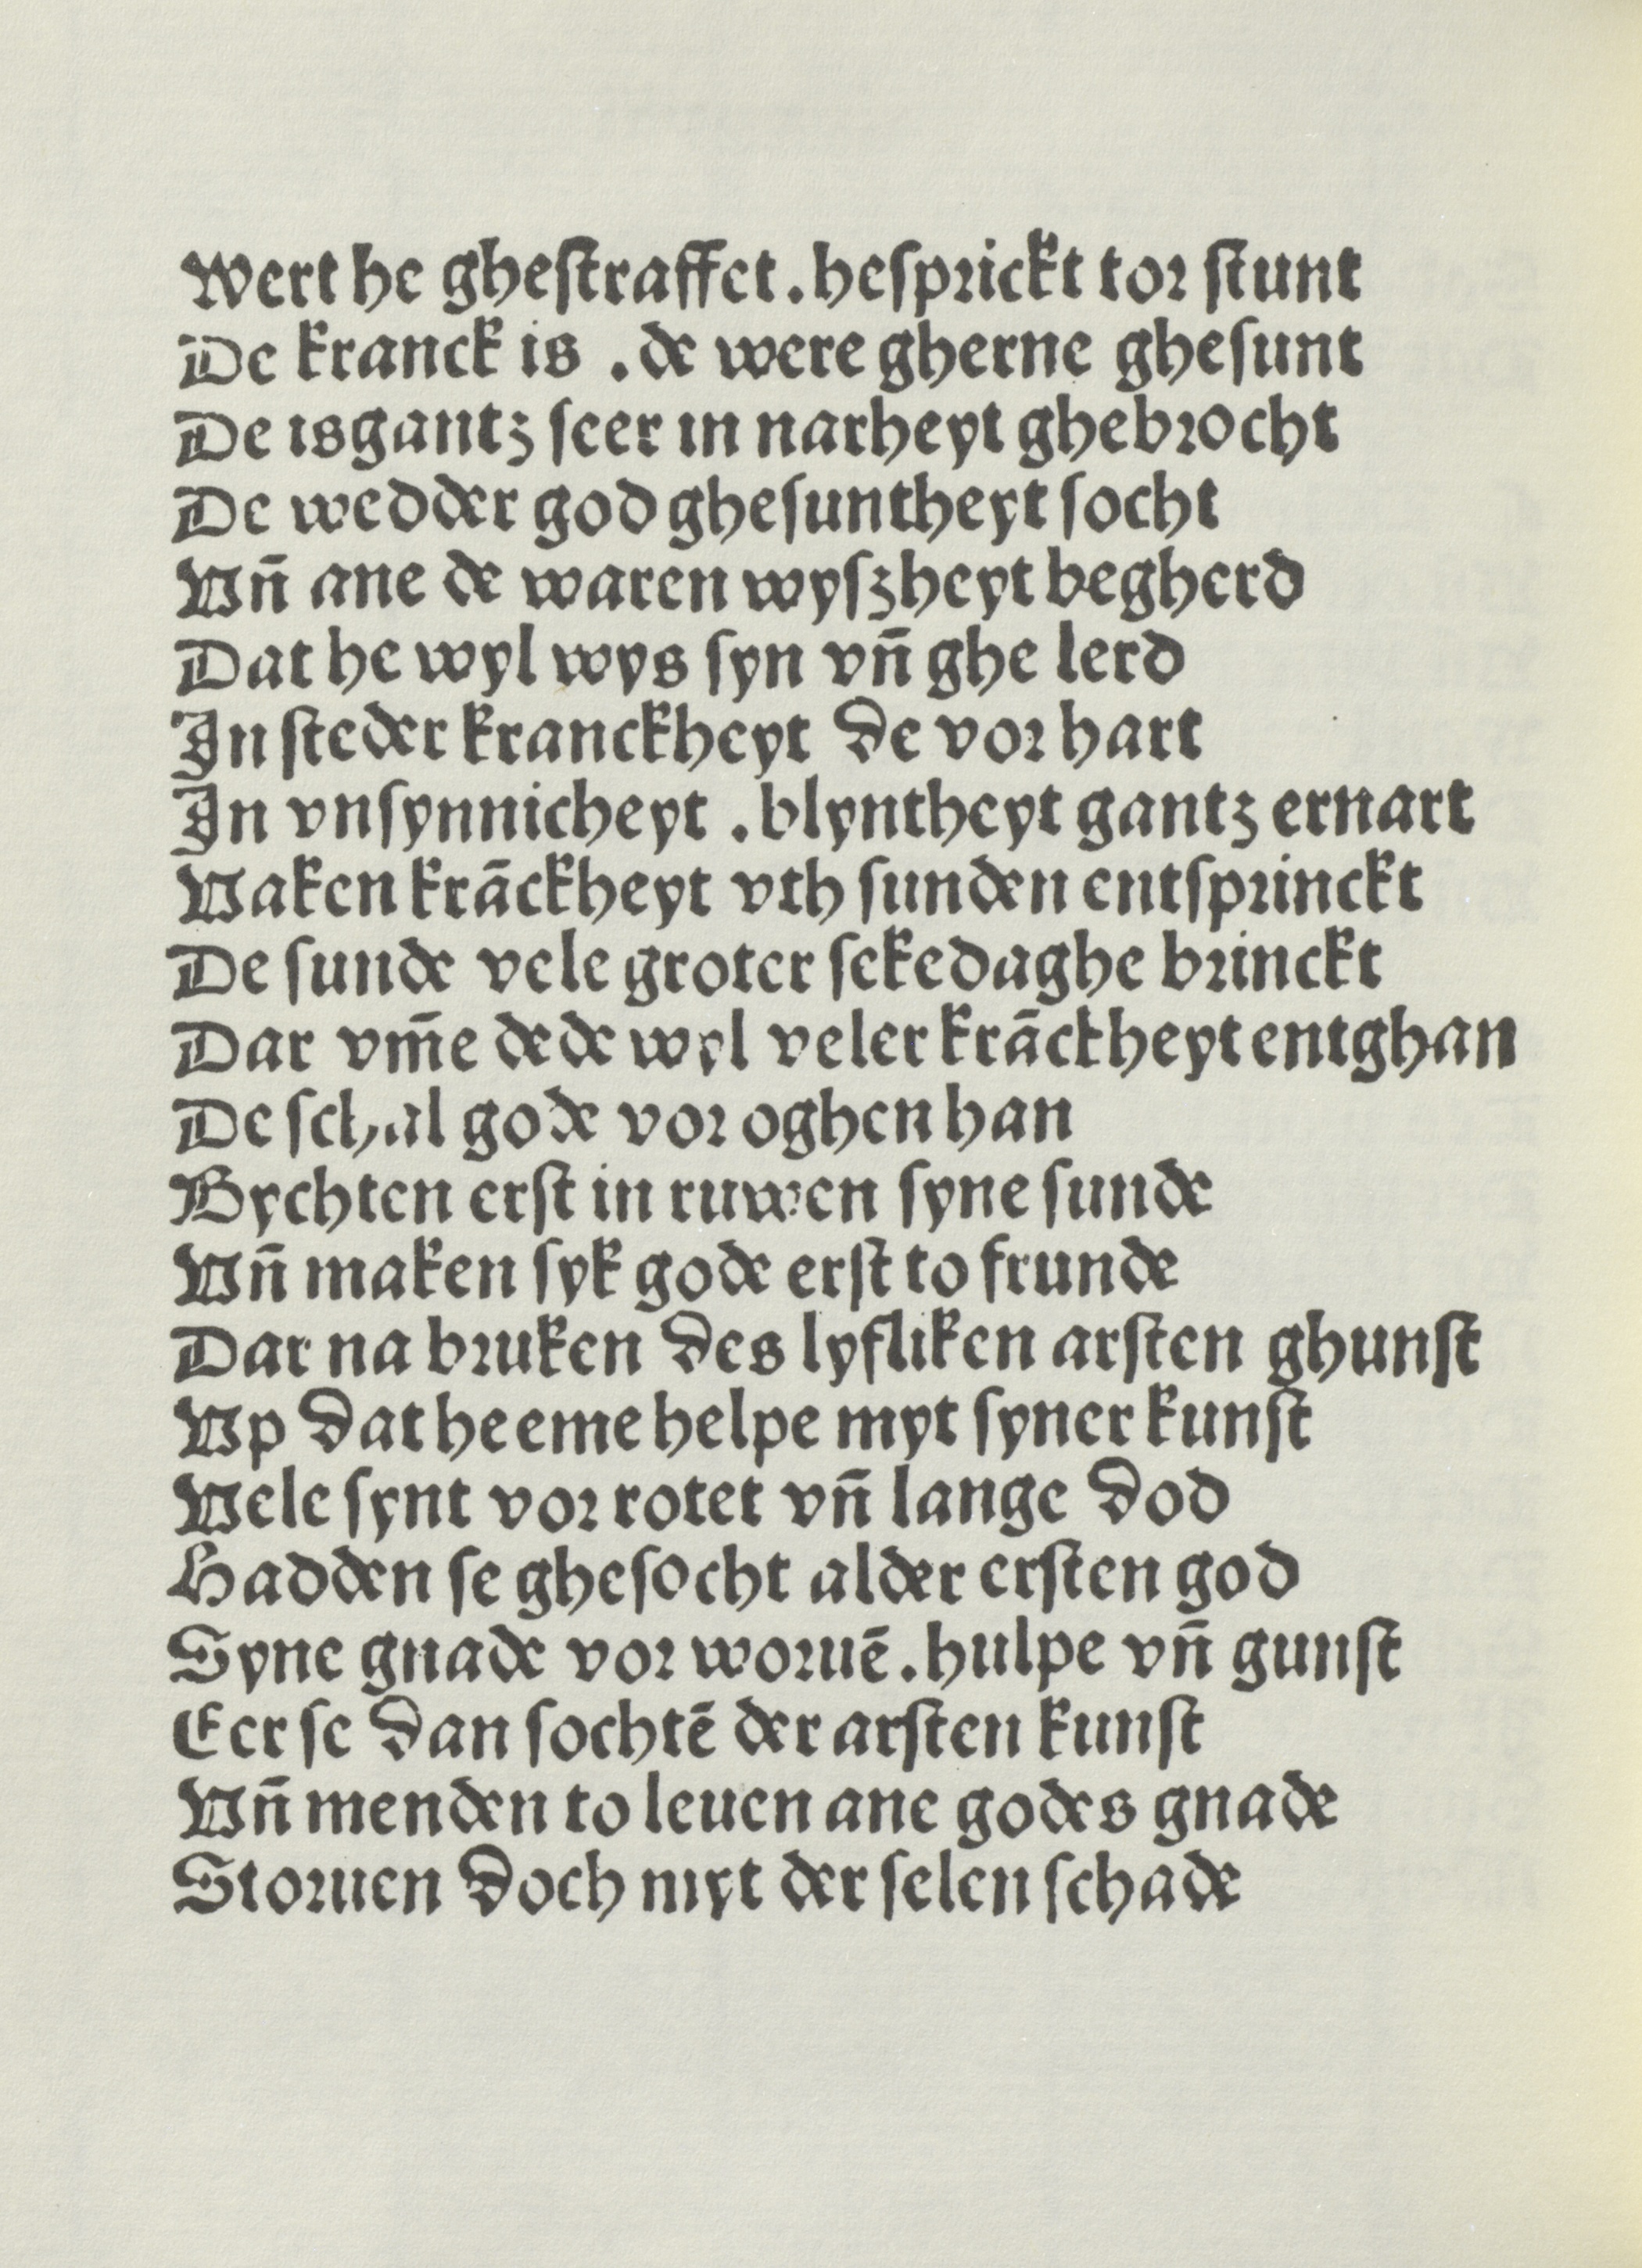 Wert he ghestraffet . hesprickt tor stunt
De kranck is . de were gherne ghesunt
De isgantz seer in narheyt ghebrocht
De wedder god ghesuntheyt socht
Vn̄ ane de waren wyszheyt begherd
Dat he wyl wys syn vn̄ ghe lerd
In steder kranckheyt de vor hart
In vnsynnicheyt . blyntheyt gantz ernart
Vaken krāckheyt vth sunden entsprinckt
De sunde vele groter sekedaghe brinckt
Dar vm̄e dede wyl veler krāckheyt entghan
De schal gode vor oghen han
Bychten erst in ruwen syne sunde
Vn̄ maken syk gode erst to frunde
Dar na bruken des lyfliken arsten ghunst
Vp dat he eme helpe myt syner kunst
Vele synt vor rotet vn̄ lange dod
Hadden se ghesocht alder ersten god
Syne gnade vor woruē . hulpe vn̄ gunst
Eer se dan sochtē der arsten kunst
Vn̄ menden to leuen ane godes gnade
Storuen doch myt der selen schade